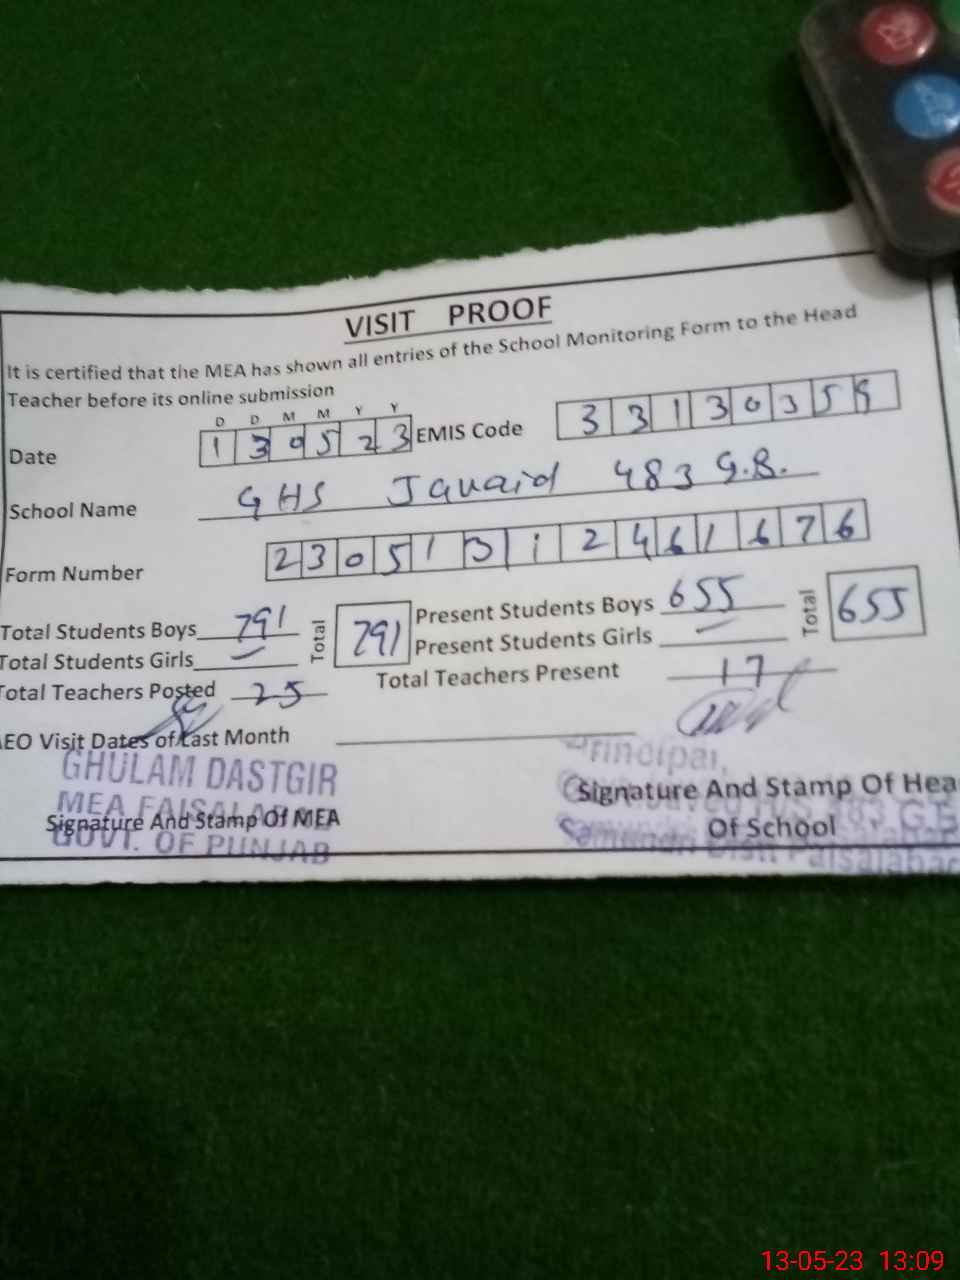 VISIT PROOF
It is certified that the MEA has shown all entries of the School Monitoring Form to the Head
Teacher before its online submission
D D M M Y Y
Date 1 3 0 5 2 3 EMIS Code 3 3 1 3 0 3 5 9
School Name GHS Jauaid 483 G.B.
Form Number 2 3 0 5 1 3 1 2 4 6 1 6 7 6
Total Students Boys 791 Total 791 Present Students Boys 655 Total 655
Total Students Girls — Present Students Girls —
Total Teachers Posted 25 Total Teachers Present 17
AEO Visit Dates of Last Month
GHULAM DASTGIR Principal,
MEA FAISALABAD Signature And Stamp Of Hea
Signature And Stamp Of MEA 483 G.B
GOVT. OF PUNJAB Of School
Samundri Distt Faisalabad
13-05-23 13:09